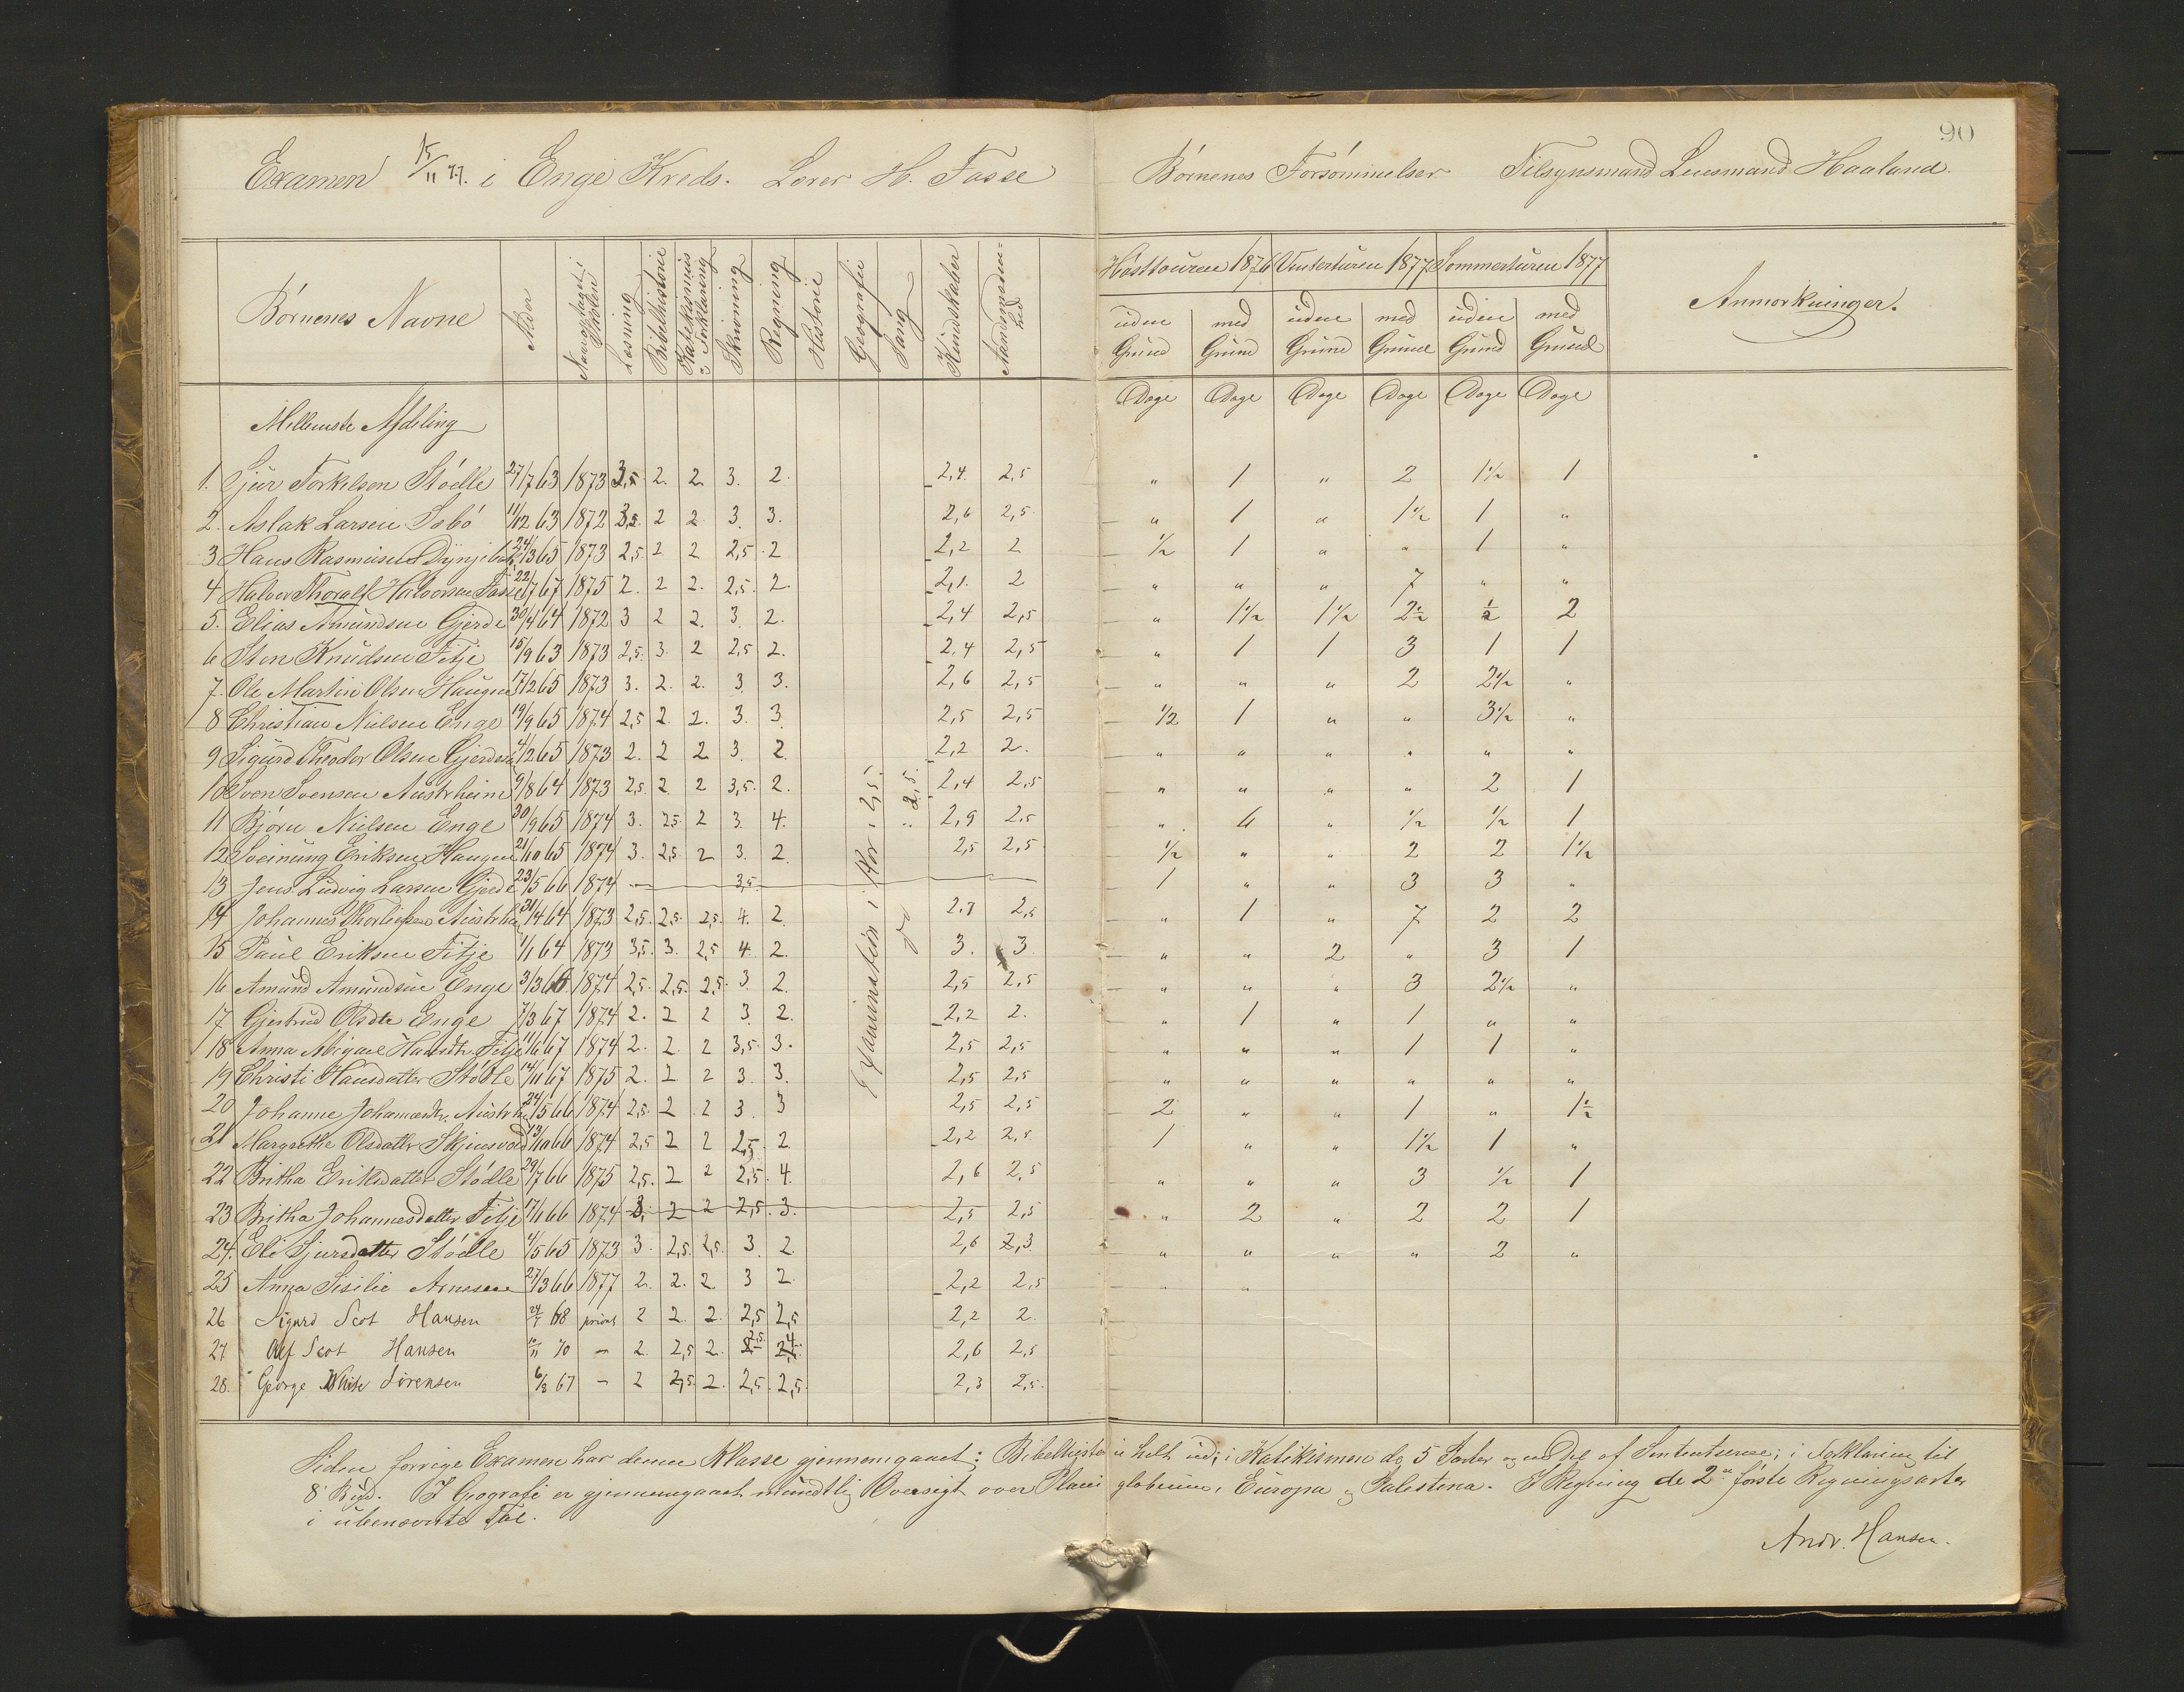 90
Examen 15/11 77. i Enge Kreds. Lærer H. Fasse Børnenes Forsømmelser Tilsynsmand Lensmand Haaland.
Børnenes Navne Alder Naar optaget i Skolen Læsning Bibelhistorie Katekismus & Forklaring Skrivning Regning Historie Geografi Sang Kundskaber Høsttouren 1876 Vinterturen 1877 Sommerturen 1877 Anmærkninger.
uden Grund med Grund uden Grund med Grund uden Grund med Grund
Dage Dage Dage Dage Dage Dage
Mellemste Afdeling
1. Sjur Torkelsen Stødle 27/7 63 1873 2,5 2. 2 3. 2. 2,4. 2,5 " 1 " 2 1½ 1
2. Aslak Larsen Isbø 11/12 63 1872 3,5 2 2 3. 3. 2,6 2,5 " 1 " 1½ 1 "
3 Hans Rasmusen 24/3 65 1873 2,5 2 2 2,5 2 2,2 2 ½ 1 " " 1 "
4 Halvor Thoralf Halvorsen Fasse 22/7 67 1875 2. 2 2. 2,5. 2 2,1. 2 " " " 7 " "
5. Elias Amundsen Gjerde 30/4 64 1872 3 2 2. 3. 2. 2,4 2,5 " 1½ 1½ 2½ ½ 2
6 Sten Knudsen Fitje 15/9 63 1873 2,5. 3. 2 2,5 2. 2,4 2,5 " 1 1 3 1 1
7. Ole Martin Olsen Haugen 17/2 65 1873 3. 2. 2. 3. 3. 2,6 2,5 " " " 2 2½ "
8 Christian Nielsen Enge 19/9 65 1874 2,5 2 2. 3. 3. 2,5 2,5 ½ 1 " " 3½ "
9 Sigurd Theodor Olsen 4/12 65 1873 2. 2 2 3. 2. 2,2 2. " " " " " "
10 Sven Svensen Austrheim 9/8 64 1873 2,5. 2 2 3,5. 2. 2,4 2,5 " " " " 2 1
11 Bjørn Nielsen Enge 30/9 65 1874 3. 2,5 2 3. 4. 2,9 2,5 " 4 " ½ ½ 1
12 Sveinung Eriksen Haugen 21/10 65 1874 3. 2,5 2 3. 2. 2,5 2,5 ½ " " 2 2 1½
13 Jens Ludvig Larsen Gjerde 23/5 66 1874 — 3,5. 1 " " 3 3 "
14 Johannes Thorleifsen Austrheim 31/4 64 1873 2,5. 2,5. 2,5. 4. 2. 2,7 2,5 " 1 " 7 2 2
15 Paul Eriksen Fitje 1/1 64 1873 3,5. 3. 2,5 4. 2. 3. 3 " " 2 " 3 1
16 Amund Amundsen Enge 3/3 66 1874 2,5. 2,5. 2,5. 3 2. 2,5 2,5 " " " 3 2½ "
17 Gjertrud Olsdtr Enge 7/3 67 1874 2. 2 2 3 2. 2,2 2. " 1 " 1 " "
18 Anna Abigael Hansdtr. Fitje 11/6 67 1874 2. 2. 2 3,5. 3. 2,5 2,5 " " " 1 1 "
19 Christi Hansdatter Stødle 14/11 67 1875 2. 2 2 3 3. 2,5 2,5 " " " " " "
20 Johanne Johannesdtr. Austrheim 24/5 66 1874 2,5. 2 2 3. 3 2,5 2,5 2 " " 1 " 1½
21 Margrethe Olsdatter Skjensvold 13/10 66 1874 2,5 2 2 2,5 2 2,2 2,5. 1 " " 1½ 1 "
22 Britha Eriksdatter Stødle 29/7 66 1875 2,5. 2 2 2,5. 4. 2,6 2,5 " " " 3 ½ 1
23 Britha Johannesdatter Fitje 17/6 66 1874 3, 2 2 2,5. 3. 2,5 2,5 " 2 " 2 2 1
24. Eli Sjursdatter Stødle 4/5 65 1873 3. 2,5. 2,5. 3. 2. 2,6 2,3 " " " " 2 "
25 Anna Sisilie Arnesen 27/3 66 1877 2. 2. 2 3 2. 2,2 2,5 " "
26 Sigurd Scot Hansen 24/7 68 privat 2 2. 2. 2,5 2,5 2,2 2.
27 Alf Scot Hansen 10/11 70 — 2. 2,5 2. 2,5 4 2,6 2,5
28. George White Sørensen 6/8 67 — 2 2,5. 2. 2,5. 2,5. 2,3 2,5.
Examination i Kor: 2,5.
do " 2,5.
Siden forrige Examen har denne Klasse gjennemgaaet: Bibelhistorie helt ud; i Katekismen de 5 Parter og en Del af Sententserne; i Forklaring til
8' Bud. I Geografi er gjennemgaaet mundtlig Oversigt over Planigloberne, Europa & Palestina. I Regning de 2 første Regningsarter
i ubenævnte Tal.
Andr. Hansen.